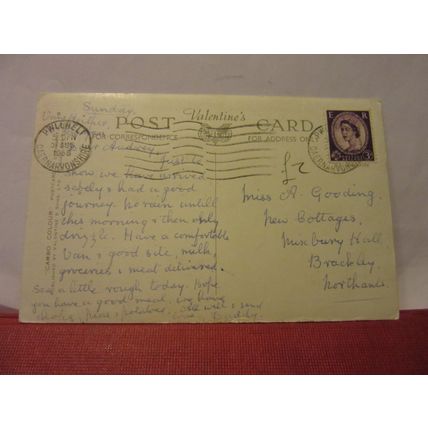 Sunday.
POST CARD
Valentine's
FOR CORRESPONDENCE
FOR ADDRESS ONLY
PWLLHELI
CAERNARVONSHIRE
E R
3D
£2
Audrey
Just to
show we have arrived
safely & had a good
journey. No rain untill
this morning & then only
drizzle. Have a comfortable
Van & good site, milk,
groceries & meat delivered.
Sea a little rough today. Hope
you have a good meal, we have
peas, potatoes,
Miss A. Gooding,
New Cottages,
Hall,
Brackley,
Northants.
"CARBO COLOUR"